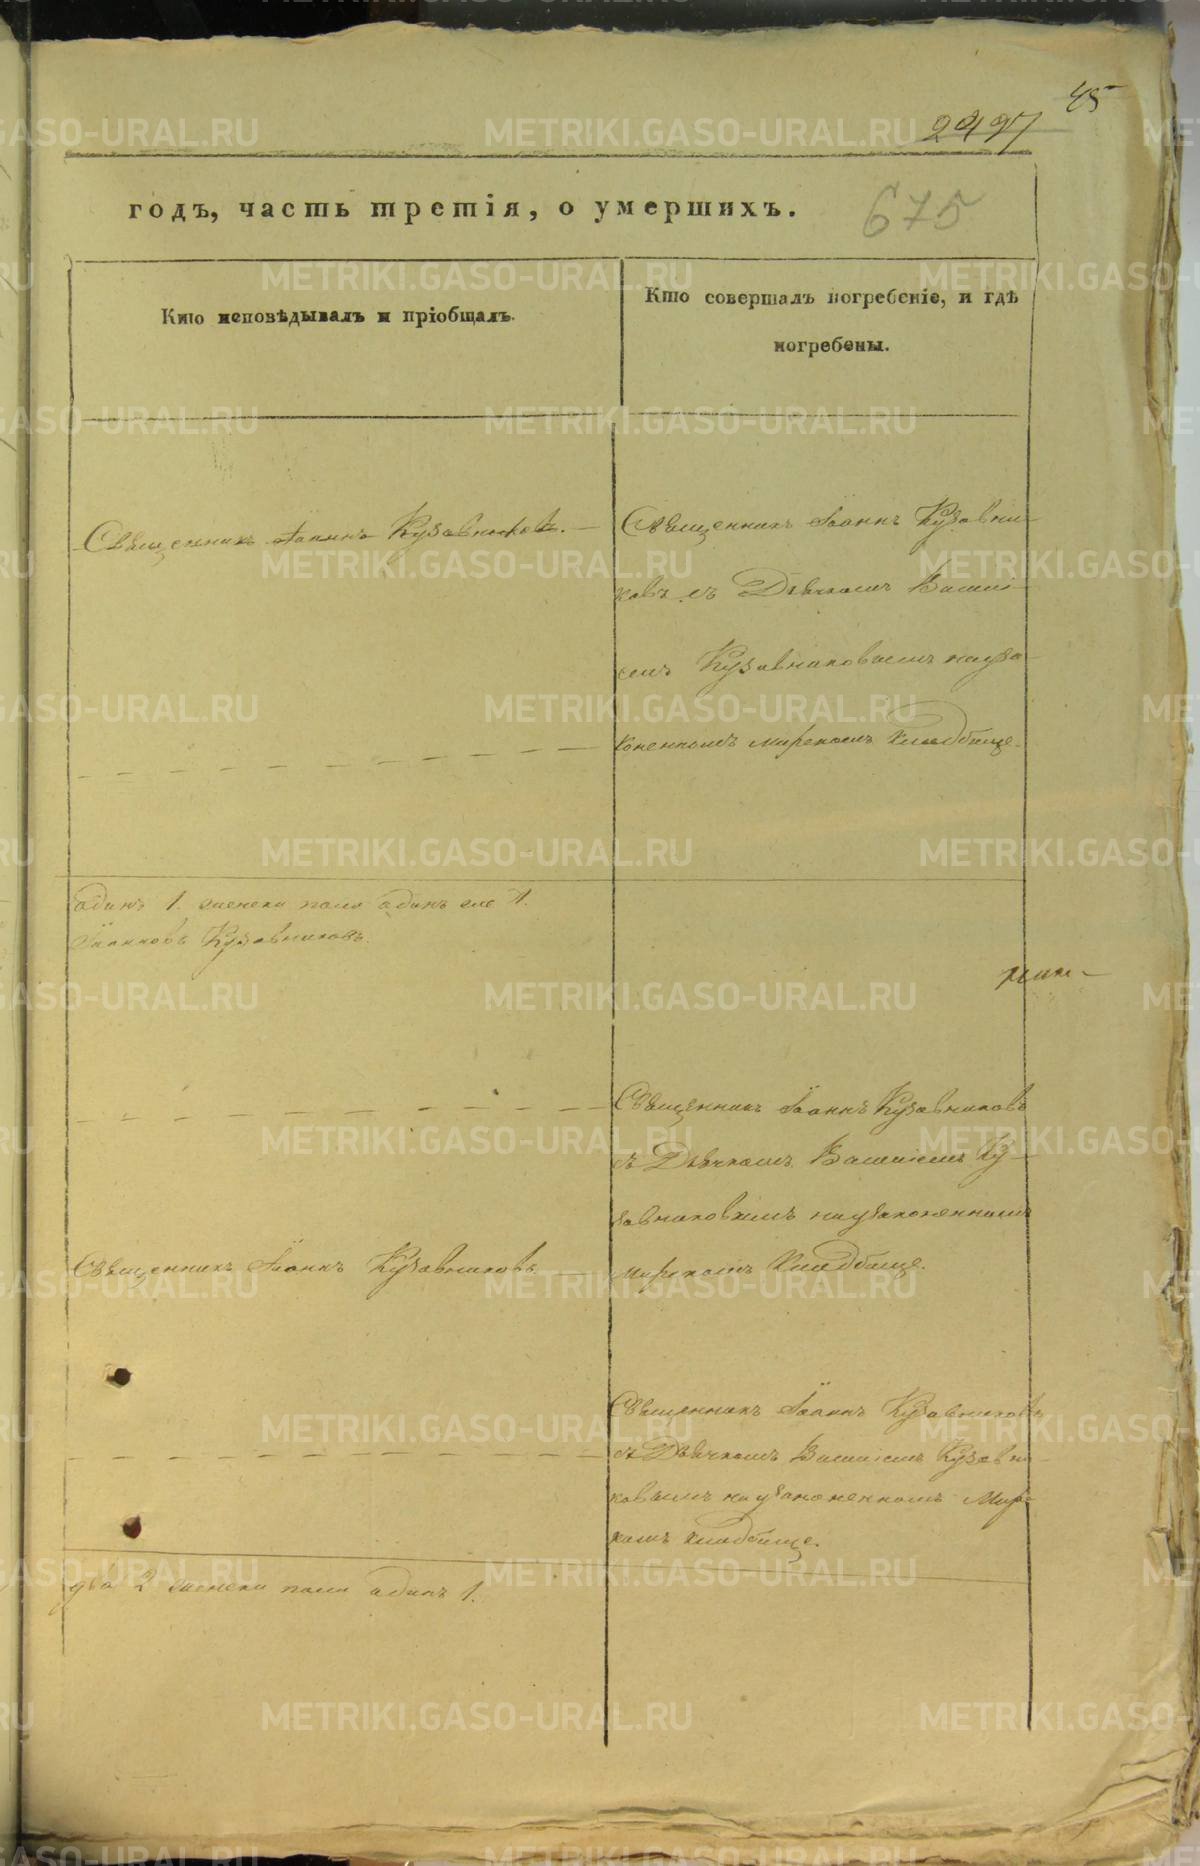 45
годъ, часть третія, о умершихъ.
675
Кто исповѣдывалъ и пріобщалъ.
Кто совершалъ погребеніе, и гдѣ
погребены.
Священникъ Іоаннъ Кузовниковъ.
Священникъ Іоаннъ Кузовни-
ковъ съ Дьячкомъ Васил-
емъ Кузовниковымъ на уза-
коненномъ мирскомъ кладбище.
одинъ 1. женска пола одинъ 1.
Іоанновъ Кузовниковъ.
Священникъ Іоаннъ Кузовниковъ
съ Дьячкомъ Василіемъ Ку-
зовниковымъ на узаконенномъ
мирскомъ кладбище.
Священникъ Іоаннъ Кузовниковъ
Священникъ Іоаннъ Кузовниковъ
съ Дьячкомъ Василіемъ Кузовни-
ковымъ на узаконенномъ мирс-
комъ кладбище.
два 2 женска пола одинъ 1.
METRIKI.GASO-URAL.RU